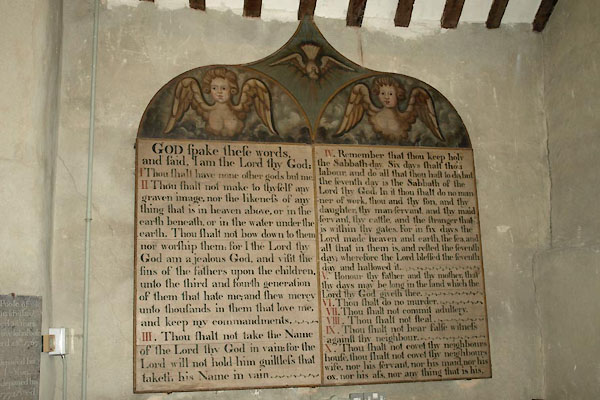 GOD ſpake theſe words,
and ſaid, I am the Lord thy God:
I Thou ſhalt have none other gods but me.
II Thou ſhalt not make to thyſelf any
graven image, nor the likeneſs of any
thing that is in heaven above, or in the
earth beneath, or in the water under the
earth. Thou ſhalt not bow down to them
nor worſhip them: for I the Lord thy
God am a jealous God, and viſit the
ſins of the fathers upon the children,
unto the third and fourth generation
of them that hate me; and ſhew mercy
unto thouſands in them that love me,
and keep my commandments.
III. Thou ſhalt not take the Name
of the Lord thy God in vain: for the
Lord will not hold him guiltleſs that
taketh his Name in vain.
IV. Remember that thou keep holy
the Sabbath-day. Six days ſhalt thou
labour, and do all that thou haſt to do, but
the ſeventh day is the Sabbath of the
Lord thy God. In it thou ſhalt do no man-
ner of work, thou and thy ſon, and thy
daughter, thy man-ſervant, and thy maid
ſervant, thy cattle, and the ſtranger that
is within thy gates. For in ſix days the
Lord made heaven and earth, the ſea, and
all that in them is, and reſted the ſeventh
day; wherefore the Lord bleſſed the ſeventh
day and hallowed it.
V. Honour thy father and thy mother, that
thy days may be long in the land which the
Lord thy God giveth thee.
VI. Thou ſhalt do no murder.
VII. Thou ſhalt not commit adultery.
VIII. Thou ſhalt not ſteal.
IX. Thou ſhalt not bear falſe witneſs
againſt thy neighbour.
X. Thou ſhalt not covet thy neighbours
houſe, thou ſhalt not covet thy neighbours
wife, nor his ſervant, nor his maid, nor his
ox, nor his aſs, nor any thing that is his.